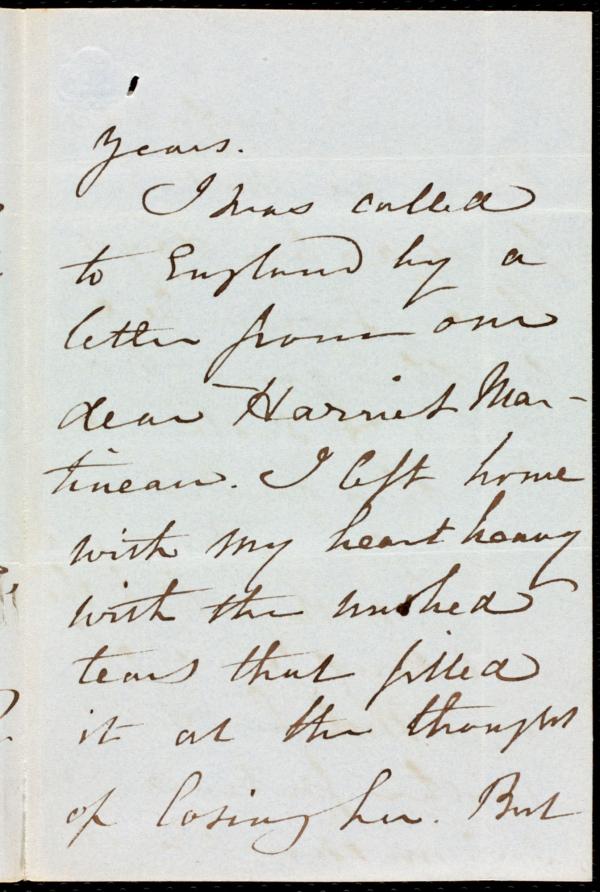 years.
I was called
to England by a
letter from our
dear Harriet Mar-
tineau. I left home
with my heart heavy
with the unshed
tears that filled
it at the thought
of losing her. But